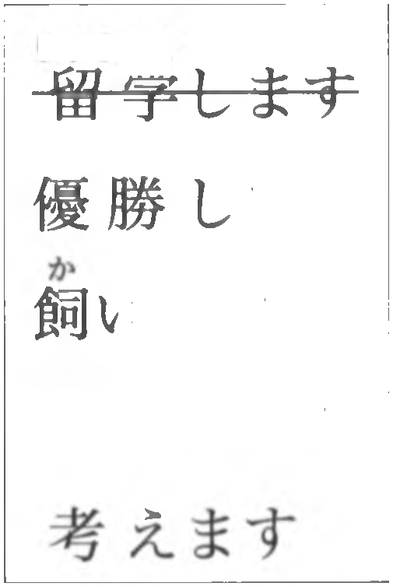 留学します
優勝し
か
飼い
考えます